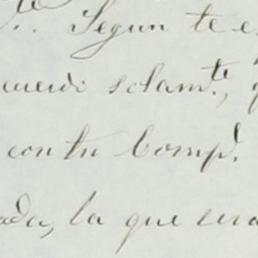 Segun te e
cuerdo solamte,
con tu Compd.
ada, la que era